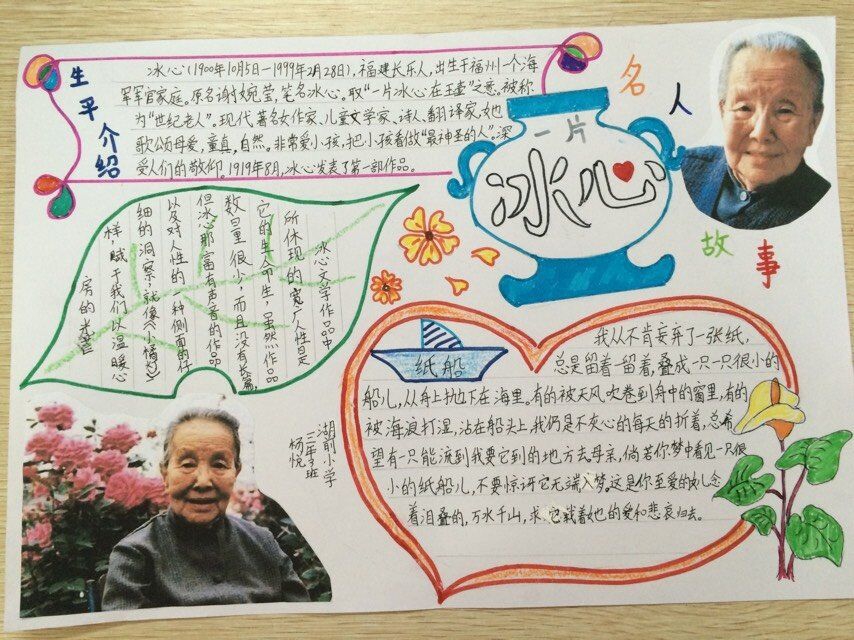 生平介绍
冰心(1900年10月5日—1999年2月28日),福建长乐人,出生于福州一个海
军军官家庭。原名谢婉莹,笔名冰心。取“一片冰心在玉壶”之意。被称
为“世纪老人”。现代著名女作家、儿童文学家、诗人、翻译家,她
歌颂母爱,童真,自然。非常爱小孩,把小孩看做“最神圣的人”。深
受人们的敬仰。1919年8月,冰心发表了第一部作品。
一片
冰心
名人
故事
冰心文学作品中
所休现的宽广人性是
它的生命所生,虽然作品
数量很少,而且没有长篇,
但冰心那富有声音的作品
以及对人性的一种侧面的仔
细的洞察,就像《小橘灯》
样,赋于我们以温暖心
房的光芒
纸船
我从不肯妄弃了一张纸,
总是留着—留着,叠成一只一只很小的
船儿,从舟上抛下在海里。有的被天风吹卷到舟中的窗里,有的
被海浪打湿,沾在船头上,我仍是不灰心的每天的折着,总希
望有一只能流到我要它到的地方去母亲,倘若你梦中看见一只很
小的纸船儿,不要惊讶它无端入梦。这是你至爱的女儿念
着泪叠的,万水千山,求它载着她的爱和悲哀归去。
湖前小学
三年3班
杨悦